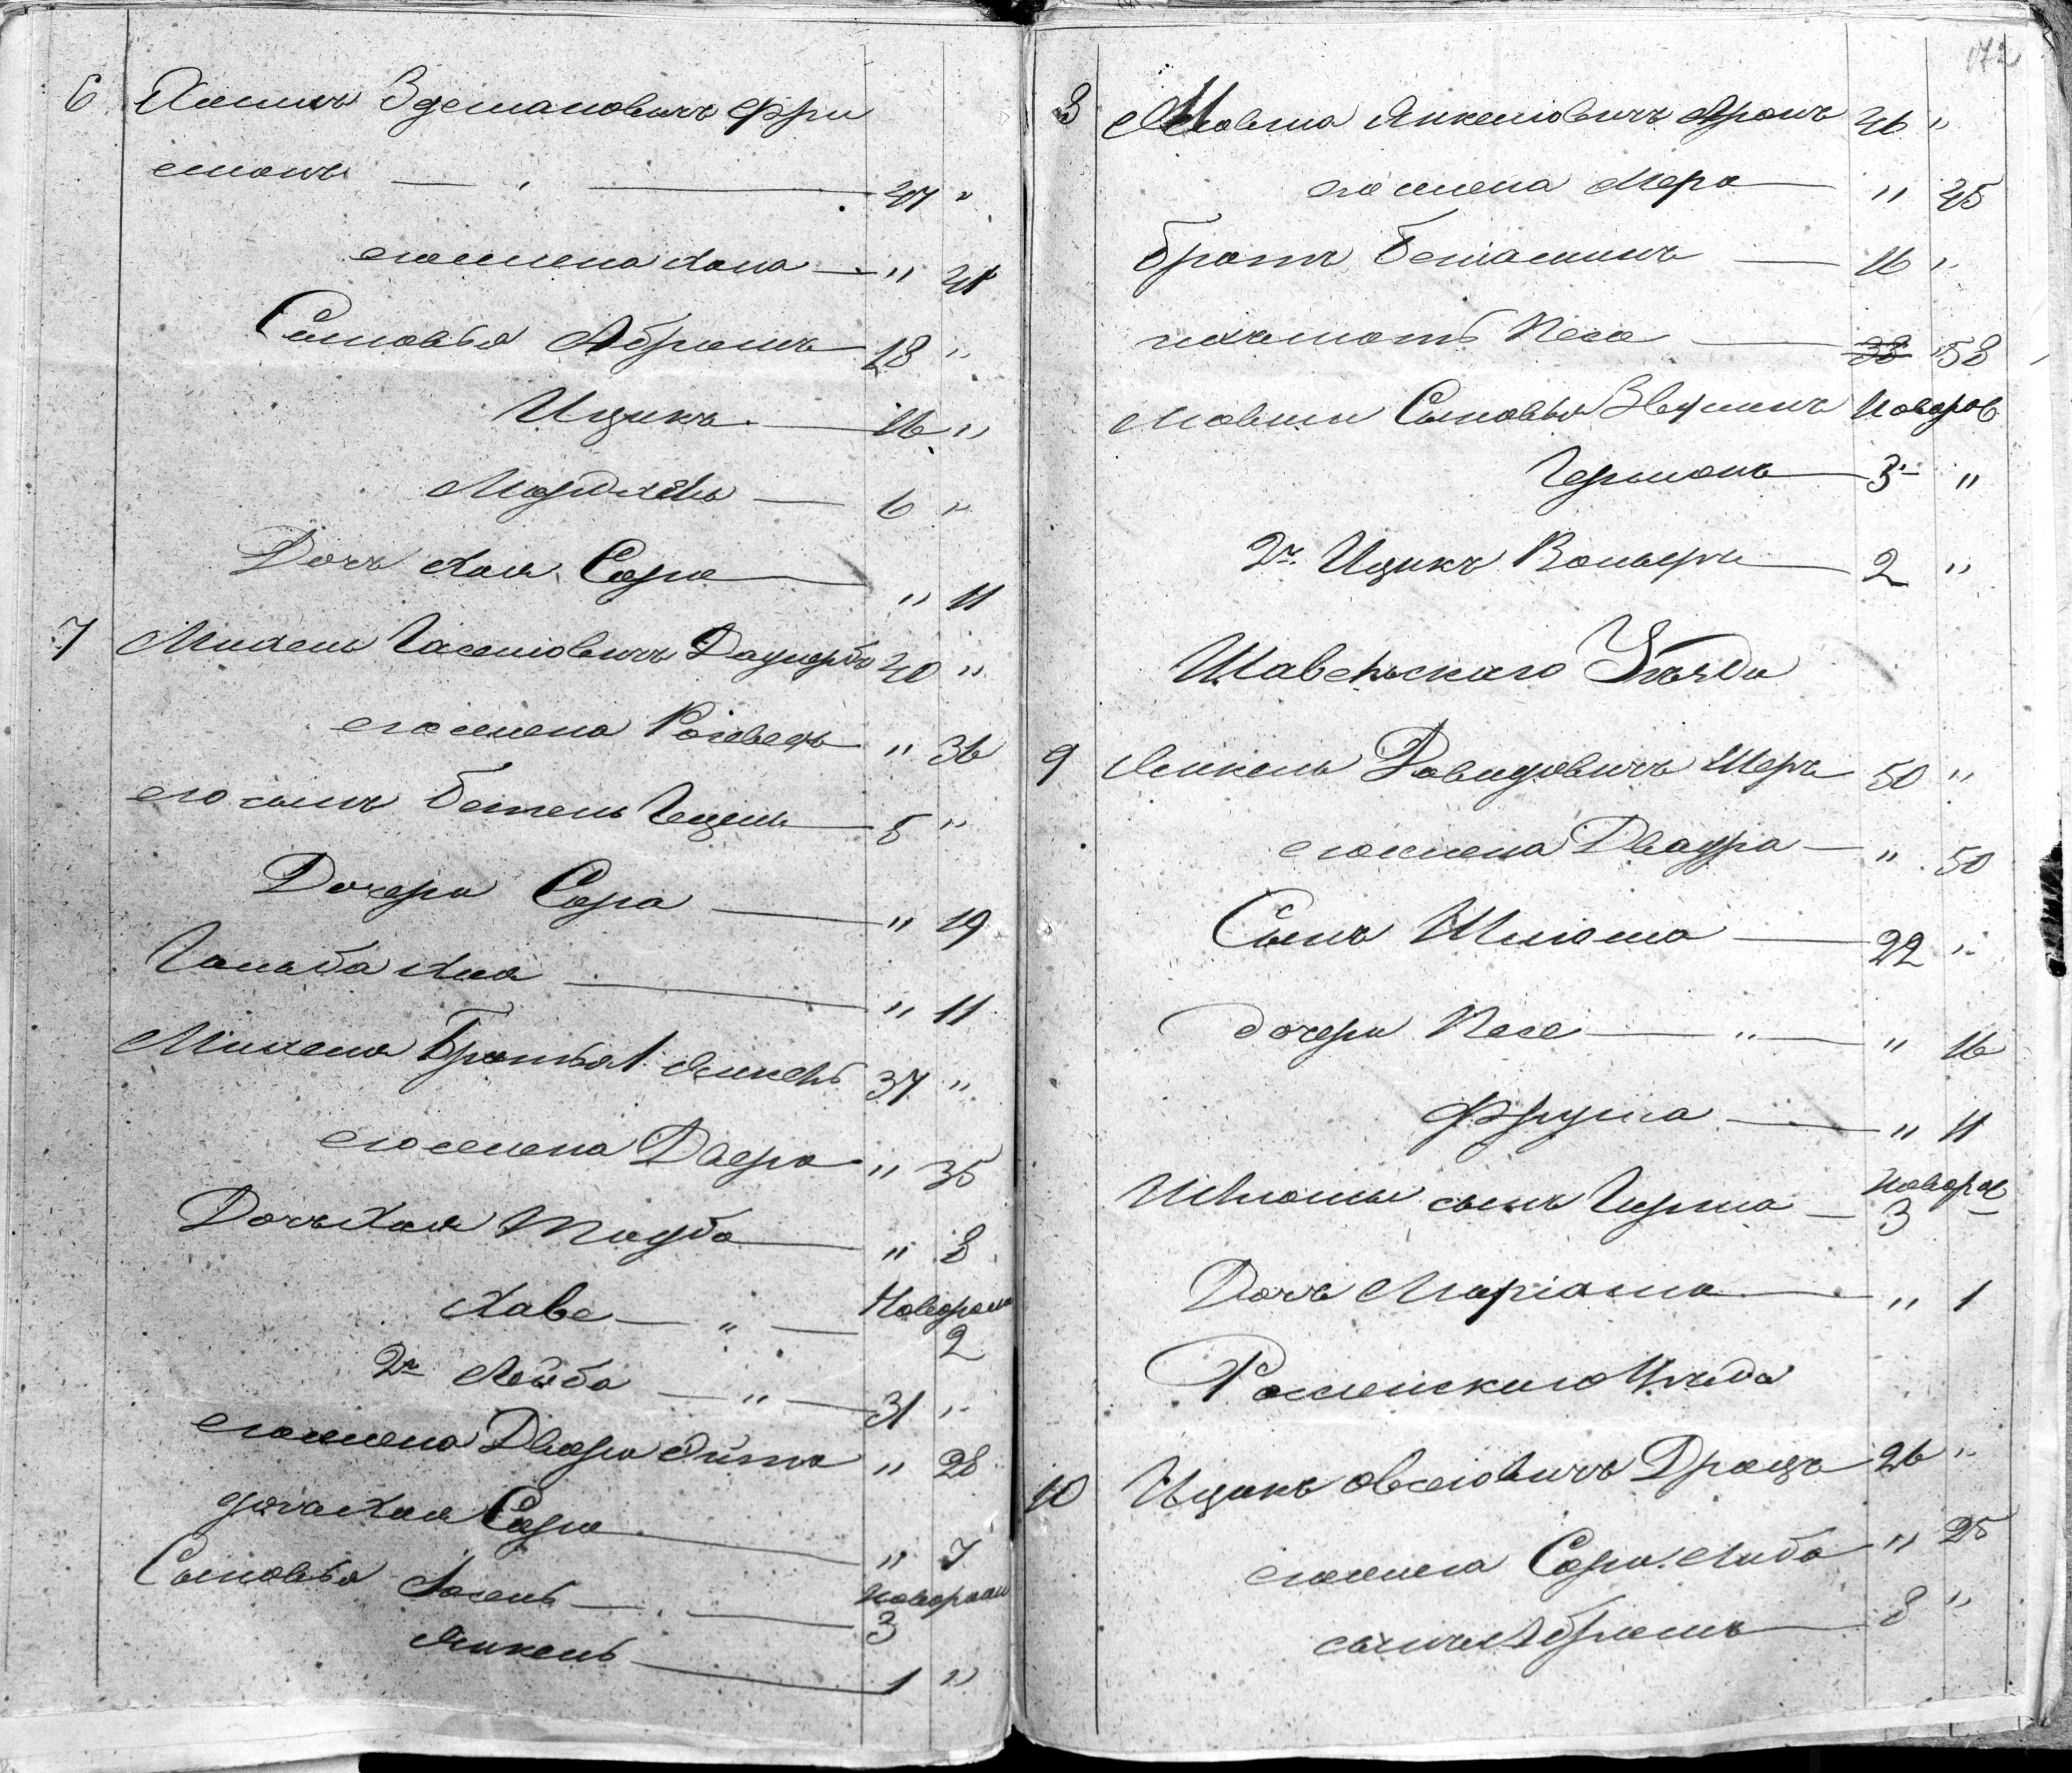 6 Хаимъ Зделановичъ Фри
манъ — 47 "
его жена Хана — " 41
Сыновья Абрамъ — 18 "
Ицикъ — 16 "
Мордхель — 6 "
Дочь Хая Сора — " 11
7 Михель Іоселіовичъ 40 "
его жена — " 36
его сынъ — 5 "
Дочери Сора — " 19
Гольда Хая — " 11
Михеля Братья 1. Янкель 37 "
его жена Двера — " 35
Дочь Хая Тауба — " 8
Хаве — " — Новорожд
2
2й Лейба — " — 31 "
его жена Двера Эйта " 28
дочь Хая Сора — " 7
Сыновья Іосель — Новорожд
3
Янкель — 1 "
172
8 Мовша Янкеліовичъ Аронъ 46 "
его жена Мера — " 45
братъ Беніаминъ — 16 "
ихъ мать Песа — 38 58
Мовши Сыновья Новорож
Германъ — 3 "
2й Ицикъ Вольфъ — 2 "
Шавельскаго Уѣзда
9 Янкель Давидовичъ Шеръ 50 "
его жена Двейра — " 50
Сынъ Шліома — 22 "
дочери Песе — " — " 16
Фрума — " 11
Шліомы сынъ Гирша — Новорож
3
Дочь Маріаша — " 1
Россіенскаго Уѣзда
10 Ицикъ Овсеіовичъ 26 "
его жена Сора Либа " 25
сынъ Абрамъ — 8 "